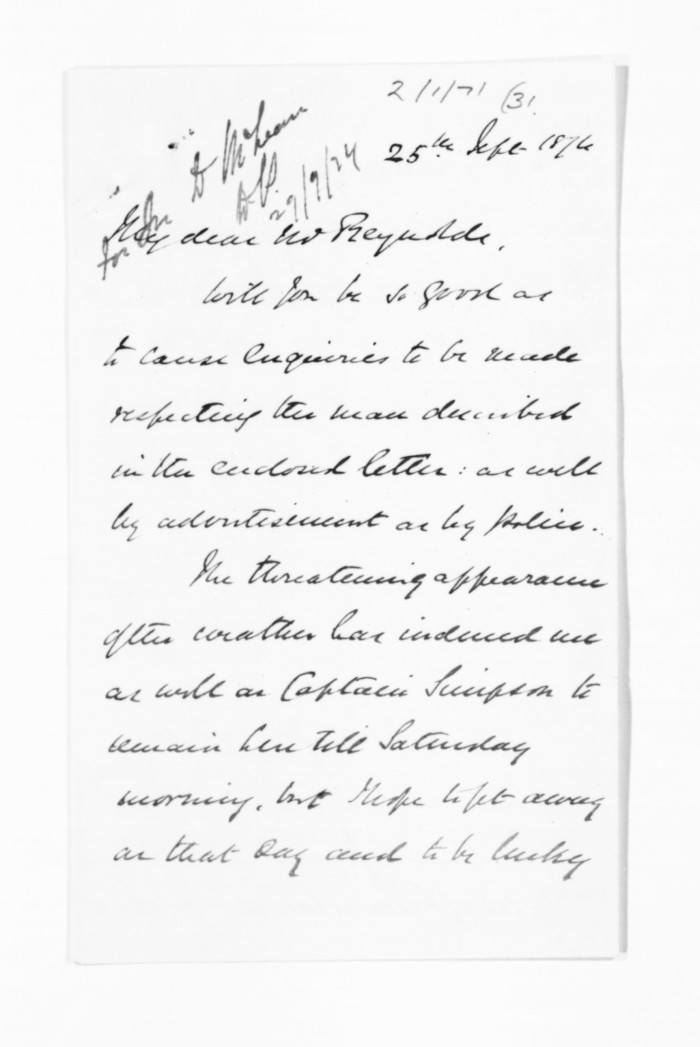 2/1/71 (31.
25th Sept 1874
For Sir D McLean
29/9/74
My dear Mr Reynolds,
Will you be so good as
to cause enquiries to be made
respecting the man described
in the enclosed letter: as well
by advertisement as by police.
The threatening appearance
of the weather has induced me
as well as Captain Simpson to
remain here till Saturday
morning, but I hope to get away
on that day and to be lucky